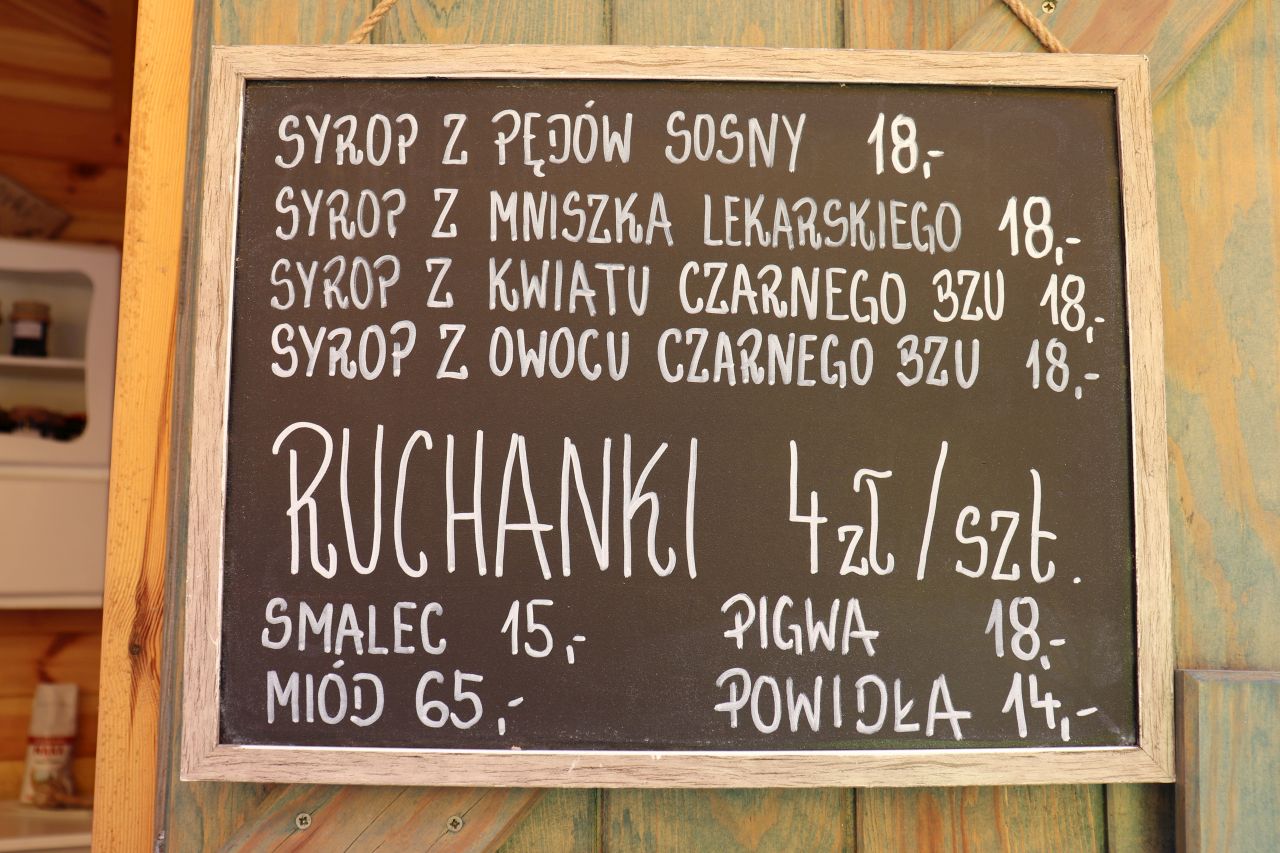 SYROP Z PĘDÓW SOSNY 18,-
SYROP Z MNISZKA LEKARSKIEGO 18,-
SYROP Z KWIATU CZARNEGO BZU 18,-
SYROP Z OWOCU CZARNEGO BZU 18,-
RUCHANKI 4zł/szt.
SMALEC 15,- PIGWA 18,-
MIÓD 65,- POWIDŁA 14,-